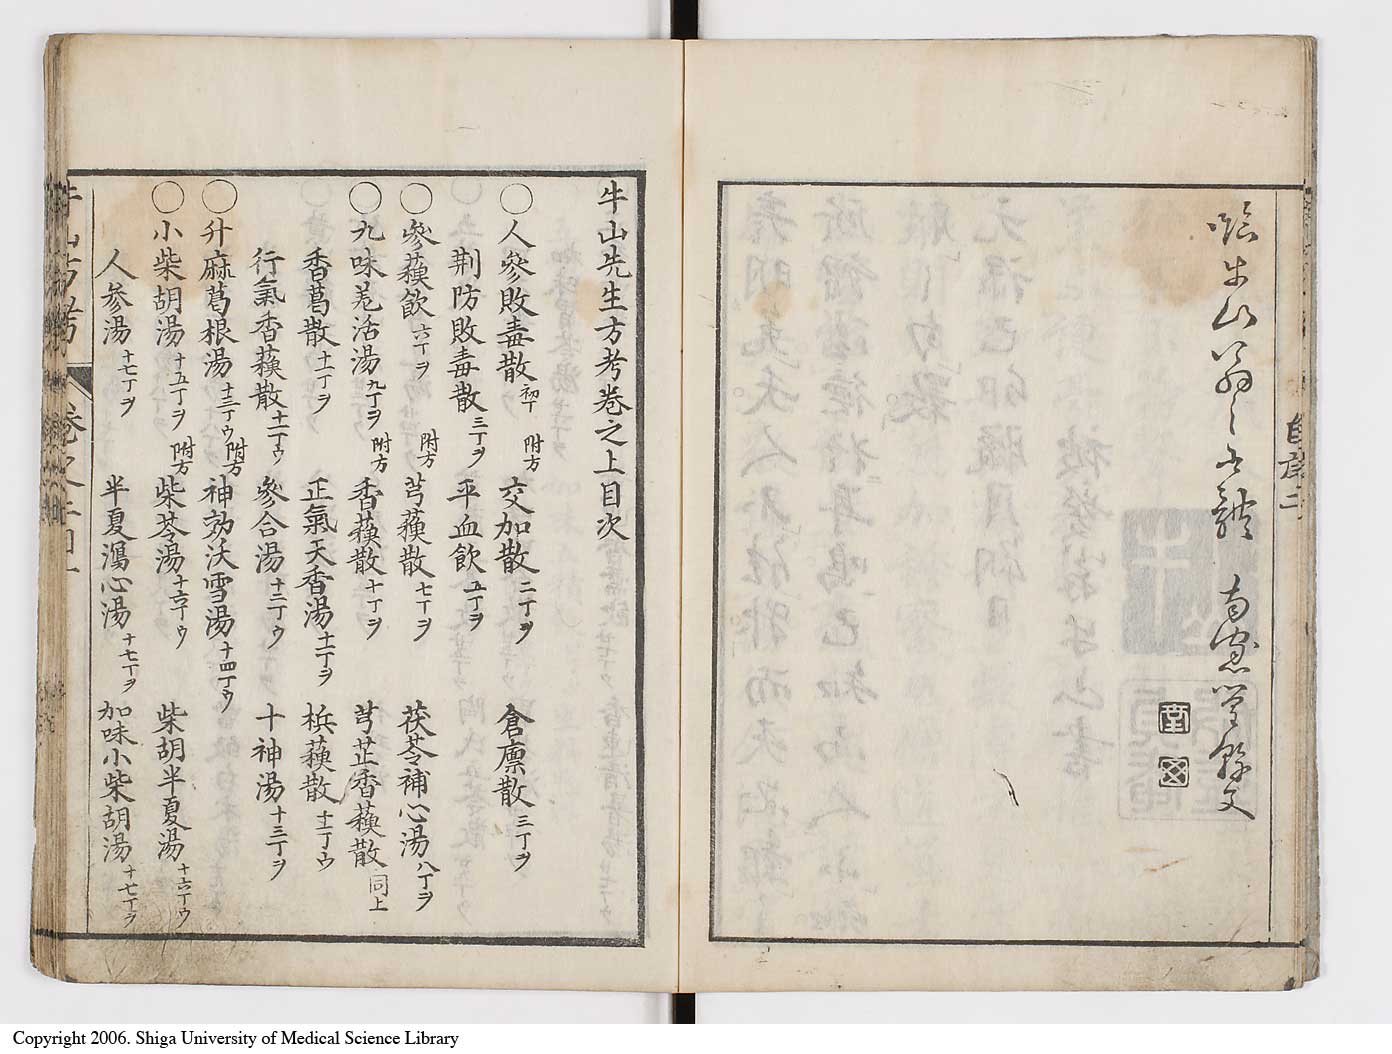 臨牛山翁之
自序二
牛山先生方考卷之上目次
○人參敗毒散 初丁 附方 交加散 二丁ヲ 倉廩散 三丁ヲ
荆防敗毒散 三丁ヲ 平血飲 五丁ヲ
○參蘓飲 六丁ヲ 附方 芎蘓散 七丁ヲ 茯苓補心湯 八丁ヲ
○九味羗活湯 九丁ヲ 附方 香蘓散 十丁ヲ 芎芷香蘓散 同上
香葛散 十一丁ヲ 正氣天香湯 十一丁ヲ 梹蘓散 十一丁ウ
行氣香蘓散 十一丁ウ 參合湯 十二丁ウ 十神湯 十三丁ヲ
○升麻葛根湯 十三丁ウ 附方 神効沃雪湯 十四丁ウ
○小柴胡湯 十五丁ヲ 附方 柴苓湯 十六丁ウ 柴胡半夏湯 十六丁ウ
人參湯 十七丁ヲ 半夏瀉心湯 十七丁ヲ 加味小柴胡湯 十七丁ウ
牛山方考 卷之上目一
Copyright 2006. Shiga University of Medical Science Library